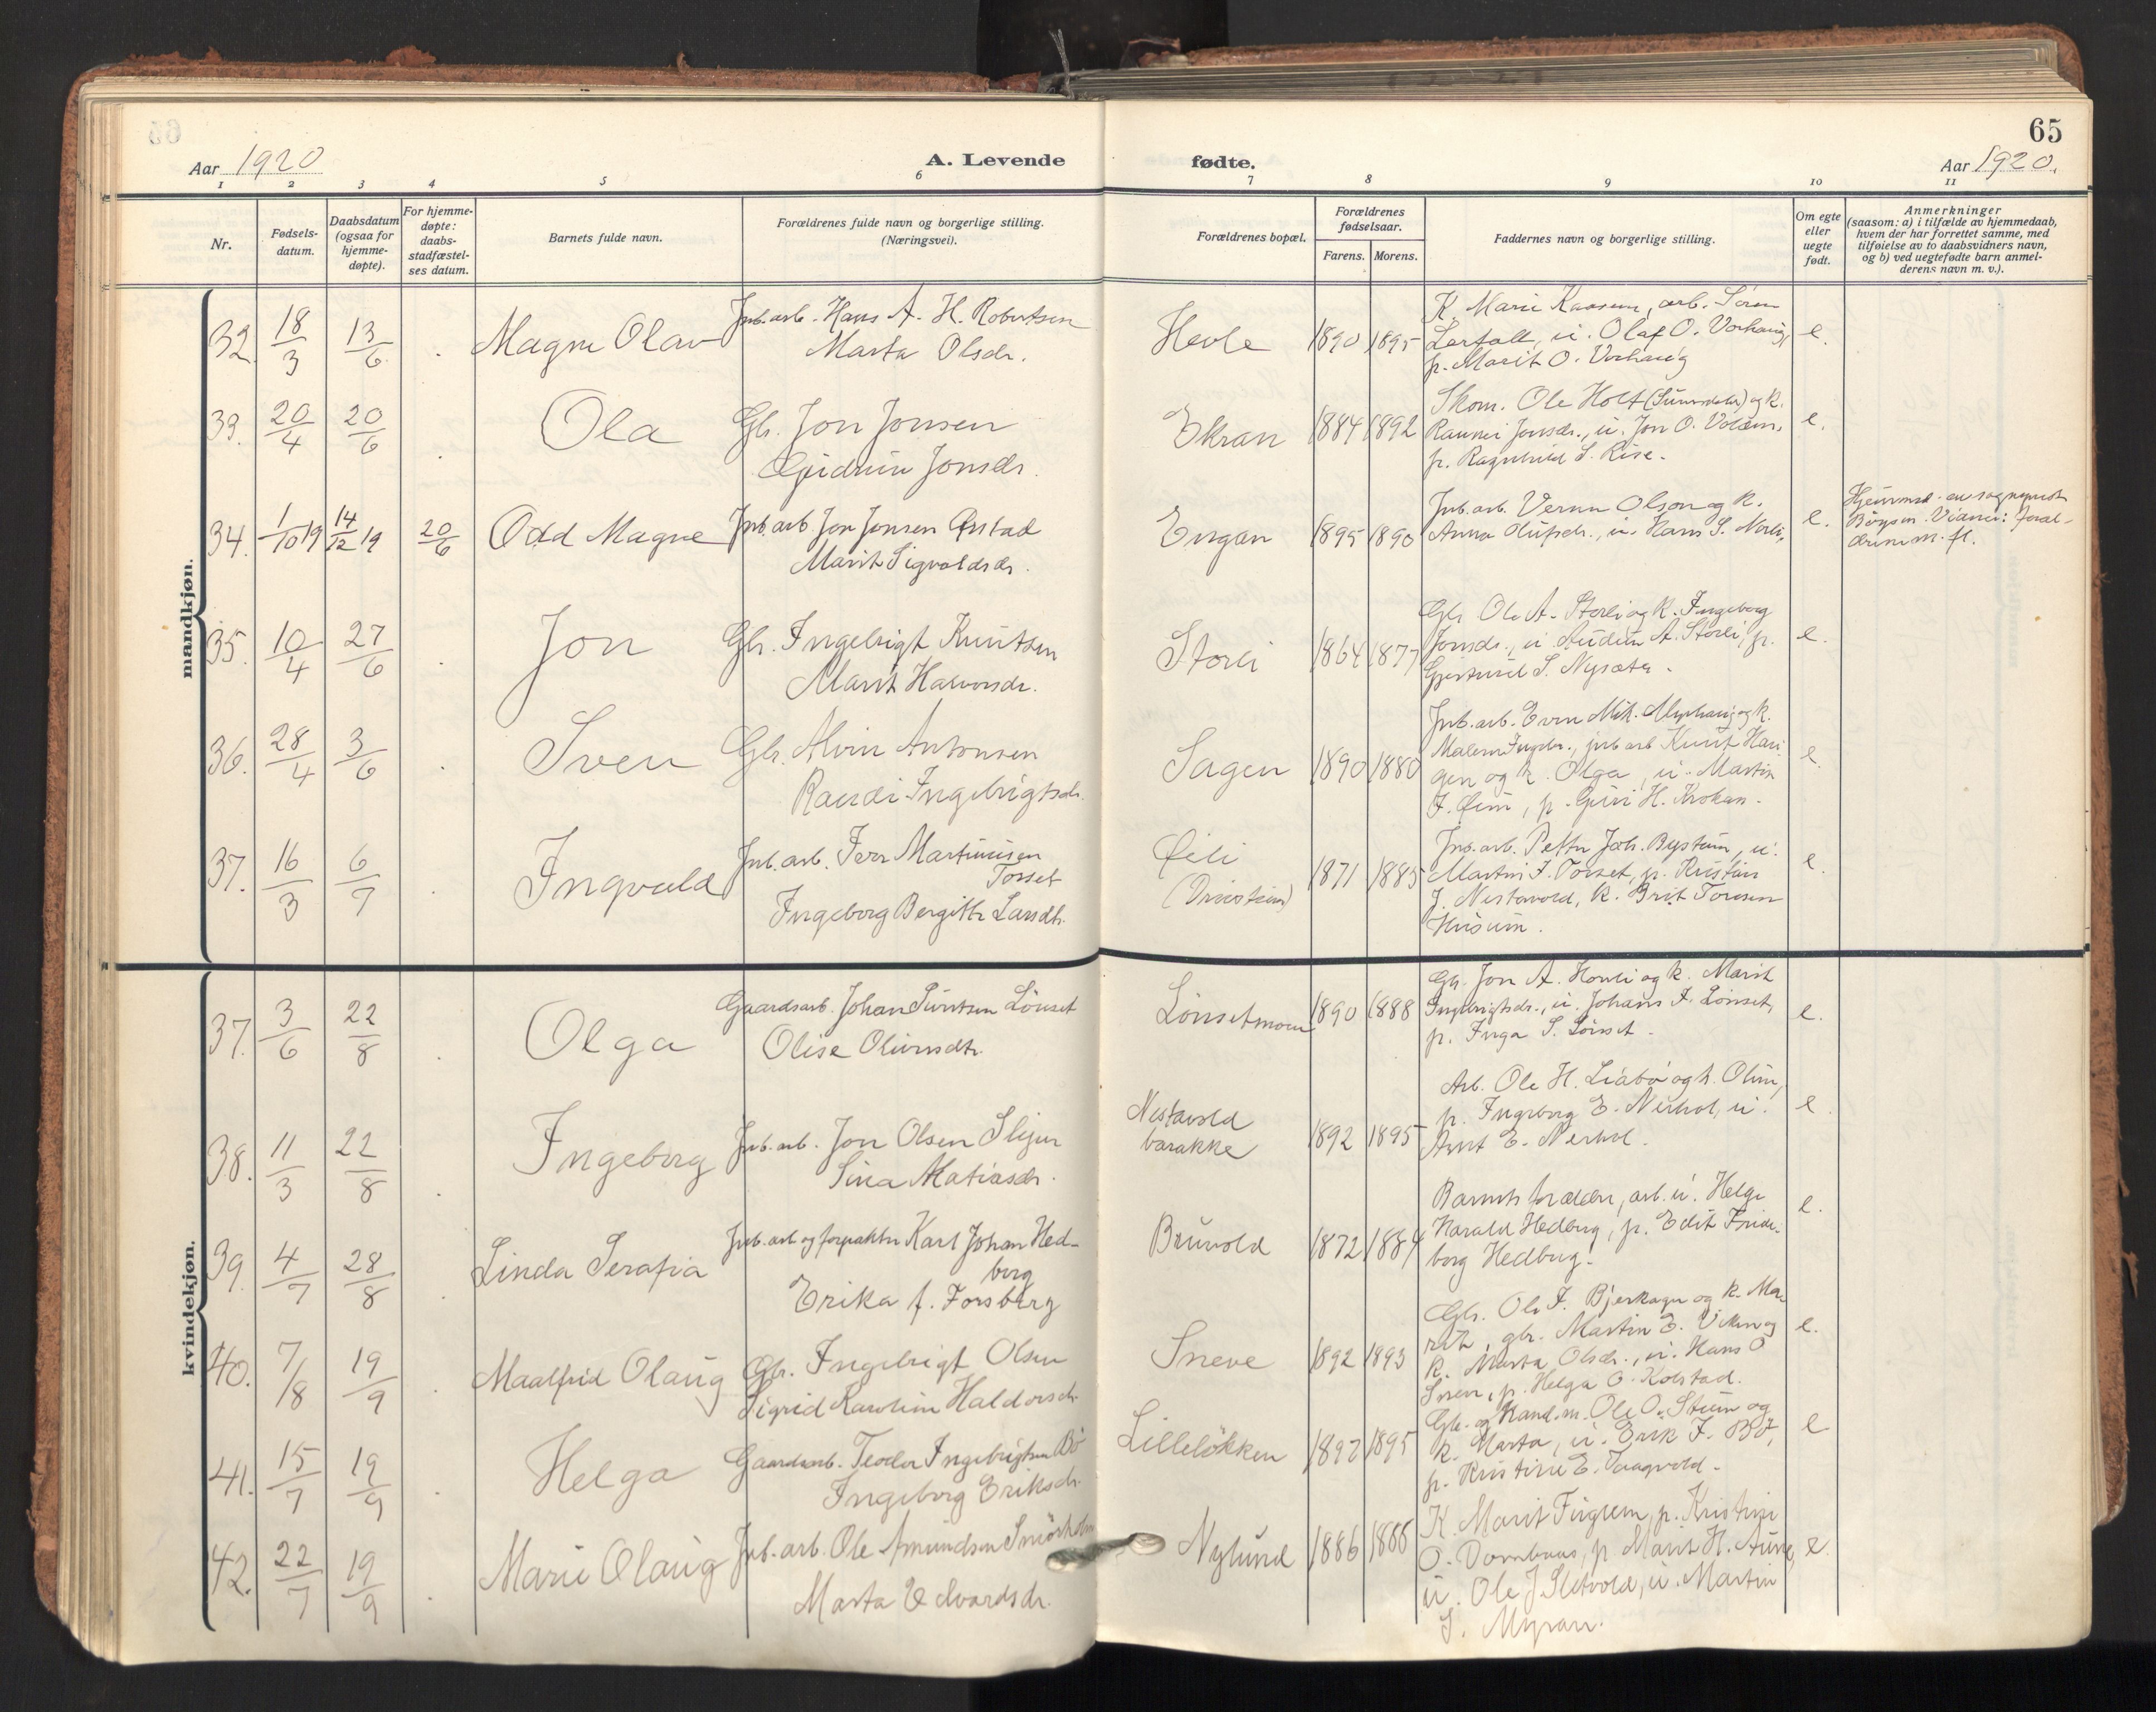 65
Aar 1920
A. Levende fødte.
Aar 1920.
1 2 3 4 5 6 7 8 9 10 11
Nr.
Fødsels-
datum.
Daabsdatum
(ogsaa for
hjemme-
døpte).
For hjemme-
døpte:
daabs-
stadfæstel-
ses datum.
Barnets fulde navn.
Forældrenes fulde navn og borgerlige stilling.
(Næringsvei).
Forældrenes bopæl.
Forældrenes
fødselsaar.
Farens. Morens.
Faddernes navn og borgerlige stilling.
Om egte
eller
uegte
født.
Anmerkninger
(saasom: a) i tilfælde av hjemmedaab,
hvem der har forrettet samme, med
tilføielse av to daabsvidners navn,
og b) ved uegtefødte barn anmel-
derens navn m. v.).
mandkjøn.
32. 18/3 13/6 . Magne Olav
Jnb.arb. Hans A. H. Robertsen
Marta Olsdr.
Hevle 1890 1895
K. Marie Kaasen, arb. Sören
Lerfall, u. Olaf O. Vorhaug,
p. Marit O. Vorhaug
e.
33. 20/4 20/6 . Ola
Gbr. Jon Jonsen
Gudrun Jonsdr.
Ekran 1884 1892
Skom. Ole Holt (Sunndalen) og k.
Rannei Jonsdr., u. Jon O. Volden,
p. Ragnhild S. Rise.
e.
34. 1/10 19 14/12 19 20/6 Odd Magne
Jnb.arb. Jon Jonsen
Marit Sigvaldsdr.
Engan 1895 1890
Jnb.arb. Olson og k.
Anna Olufsdr., u. Hans S.
e.
35. 10/4 27/6 . Jon
Gbr. Ingebrigt Knutsen
Marit Halvorsdr.
Storli 1864 1877
Gbr. Ole A. Storli og k. Ingeborg
Jonsdr., u. Audun A. Storli, p.
Gjertrud S. Nysæter.
e.
36. 28/4 3/6 . Sven
Gbr. Alvin Antonsen
Randi Ingebrigtsdr.
Sagen 1890 1880
Jnb.arb. Even Mik. og k.
Malene Ingebr., jnb.arb. Knut Hau
gen og k. Olga, u. Martin
p. Guri H. Krokan.
e.
37. 16/3 6/7 . Ingvald
Jnb.arb. Martinusen
Torset
Ingeborg Bergitte Larsdtr.
1871 1885
Jnb.arb. Petter Joh. Bystrøm, u.
Martin I. Torset, p. Kristian
J. Nestavold, k. Brit Toresen
Husum.
e.
kvindekjøn.
37. 3/6 22/8 . Olga
Gaardsarb. Johan Sivertsen Lönset
Olise Oliversdtr.
Lönsetmoen 1890 1888
Gbr. Jon A. Horvli og k. Marit
Ingebrigtsdr., u. Johans I. Lönset,
p. Inga S. Lönset.
e.
38. 11/3 22/8 . Ingeborg
Jnb.arb. Jon Olsen
Sina Matiasdr.
Nestavold
barakke 1892 1895
Arb. Ole H. Liabö og h. Oline,
p. Ingeborg E. Nerhol, u.
Arnt E. Nerhol.
e.
39. 4/7 28/8 . Linda Serafia
Jnb.arb. og forpakter Karl Johan Hed-
berg
Erika f. Forsberg
Bruvold 1872 1884
Barnets forældre, arb. u. Helge
Harald Hedberg, p. Edit Fride-
borg Hedberg.
e.
40. 7/8 19/9 . Maalfrid Olaug
Gbr. Ingebrigt Olsen
Sigrid Karoline Haldorsdr.
Sneve 1892 1893
Gbr. Ole I. Bjerkager og k. Ma-
rit, gbr. Martin E. Viken og
k. Marta Olsdr., u. Hans O.
Sneve, p. Helga O. Kolstad.
e.
41. 15/7 19/9 . Helga
Gaardsarb. Teodor Ingebrigtsen Bö
Ingeborg Eriksdr.
Lilleløkken 1897 1895
Gbr. og Hand.m. Ole O. Stuen og
k. Marta, u. Erik I. Bö,
p. Kristine E. Vaagvold.
e
42. 22/7 19/9 . Marie Olaug
Jnb.arb. Ole Amundsen
Marta Edvardsdr.
Nylund 1886 1886
K. Marit Fuglem, p. Kristine
O. Dombaas, p. Marit H. Aune,
u. Ole J. Sletvold, u. Martin
S. Myran.
e.